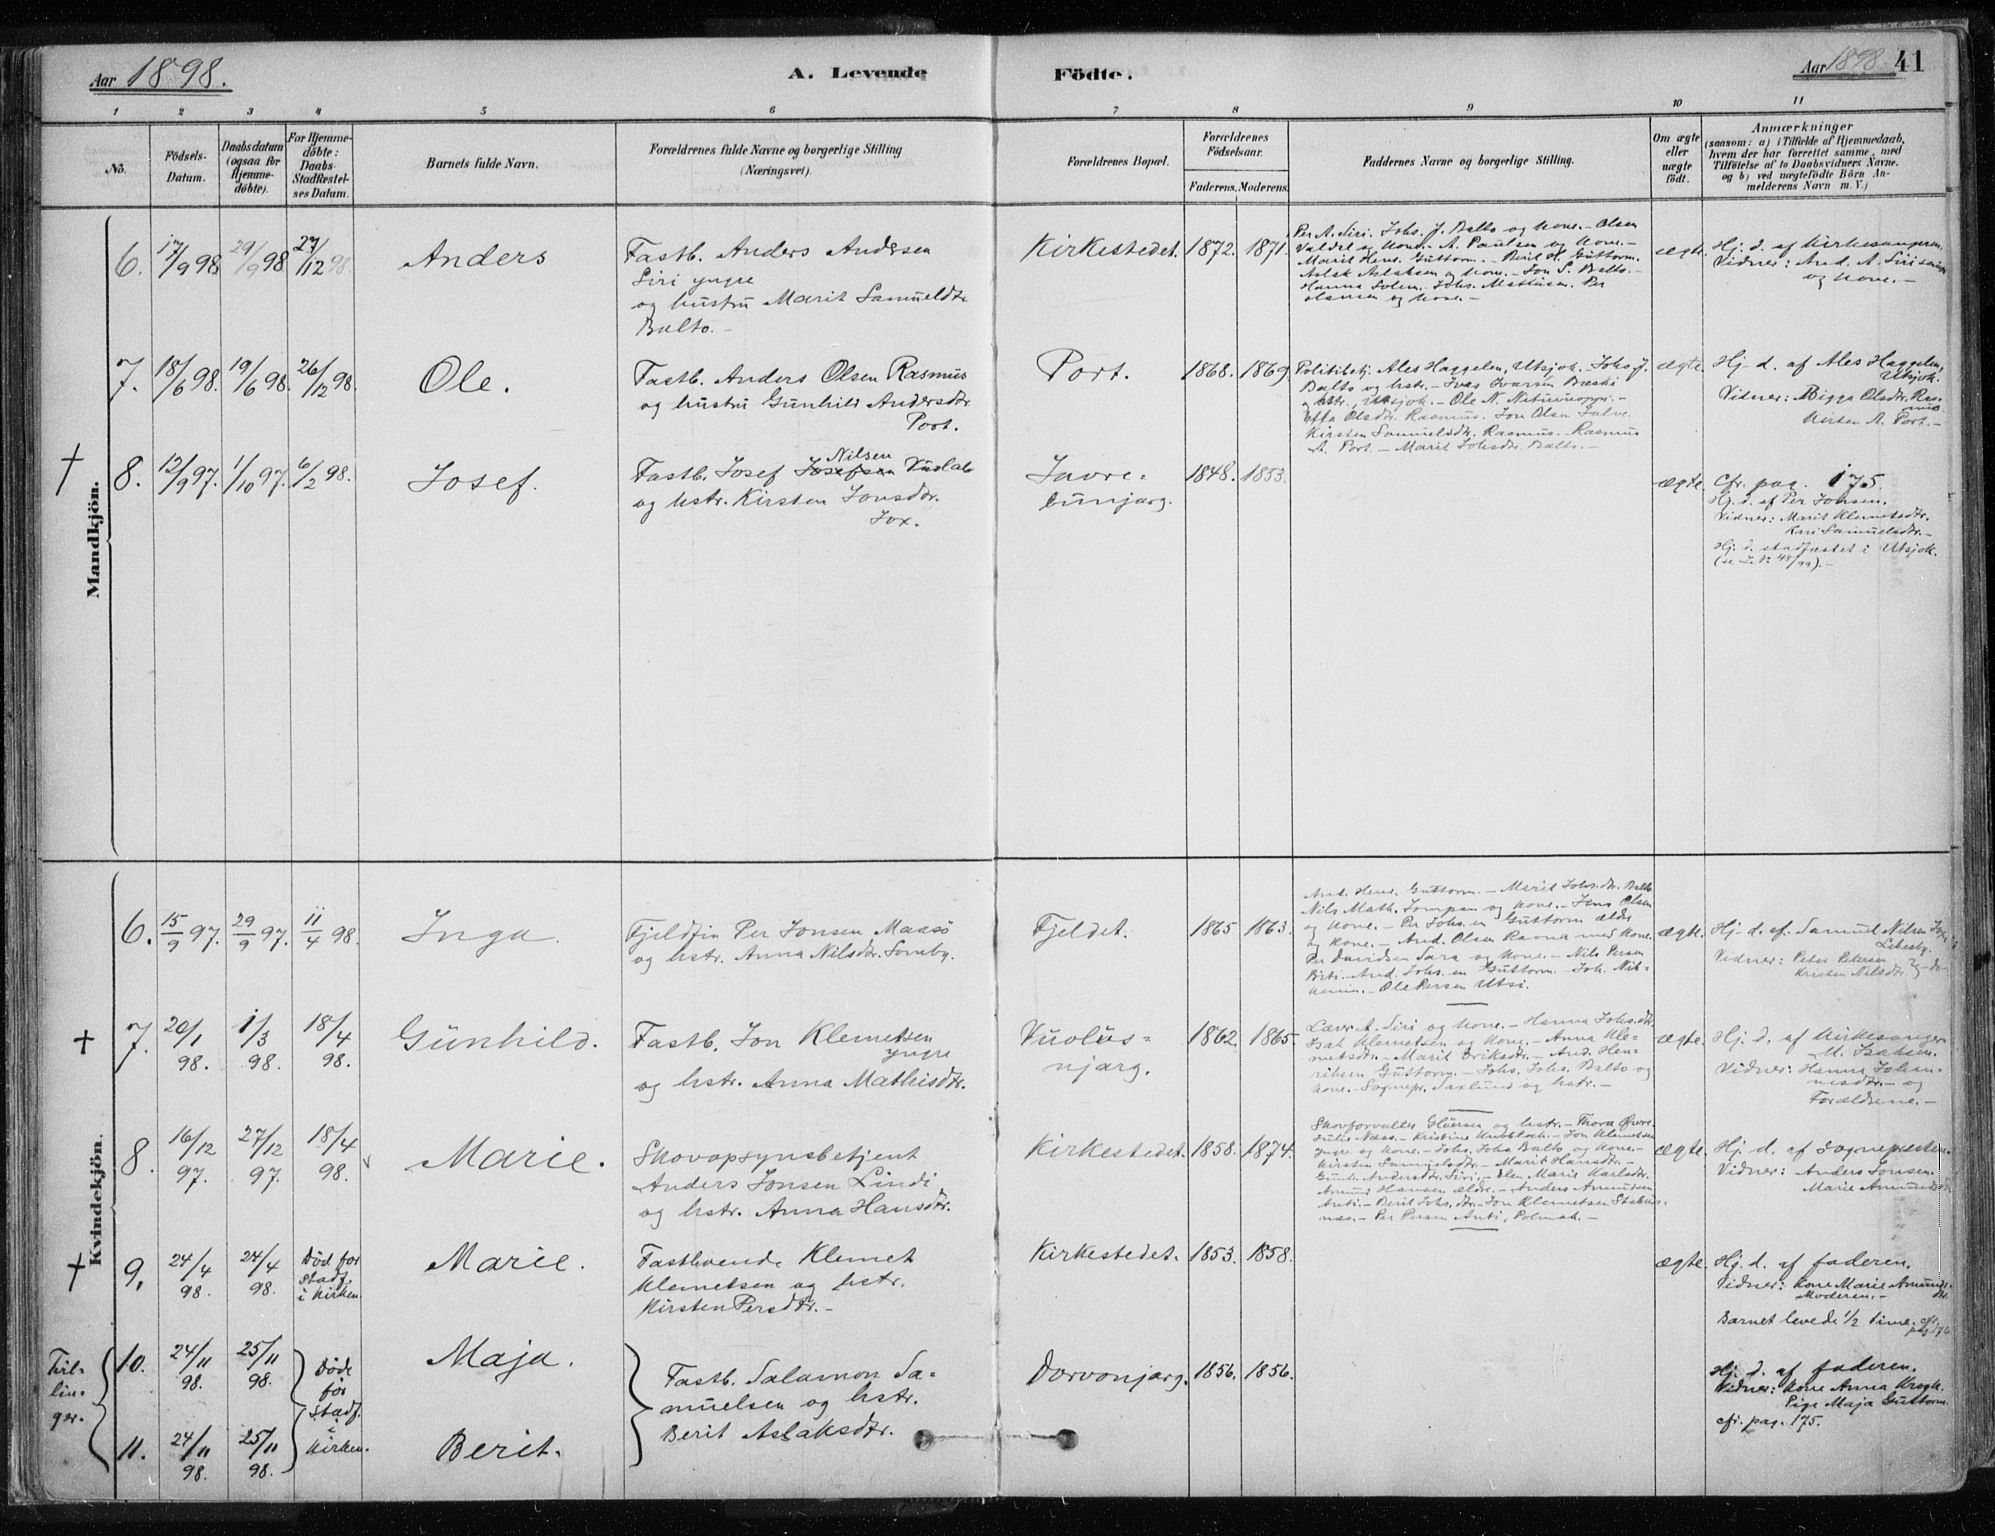 Aar 1898.
A. Levende
Födte.
Aar 1898.
41
1 2 3 4 5 6 7 8 9 10 11
No.
Födsels-
Datum.
Daabsdatum
(ogsaa for
Hjemme-
döbte).
For Hjemme-
döbte:
Daabs-
Stadfæstel-
ses Datum.
Barnets fulde Navn.
Forældrenes fulde Navne og borgerlige Stilling
(Næringsvei).
Forældrenes Bopæl.
Forældrenes
Födselsaar.
Faderens. Moderens.
Faddernes Navne og borgerlige Stilling.
Om ægte
eller
uægte
födt.
Anmærkninger
(saasom: a) i Tilfælde af Hjemmedaab,
hvem der har forrettet samme, med
Tilföielse af to Daabsvidners Navne,
og b) ved uægtefödte Börn An-
melderens Navn m. V.)
Mandkjön.
6.
17/9 98
29/9 98
27/12 98.
Anders
Fastb. Anders Andersen
Siri yngre
og hustru Marit Samuelsdtr
Balto.-
Kirkestedet.
1872.
1871.
Per A. Siri. Johs. J. Balto og kone.- Olsen
og kone.- A. Paulsen og kone.-
Marit Henr. Guttorm.- Berit H. Guttorm.
Aslak Aslaksen og kone.- Jon S. Balto.-
Hanna Solem. Johs. Mathisen. Per
Olansen og kone.-
ægte.
Hj. d. af kirkesangeren.
Vidner: And. A. Siri
og kone.-
7.
18/6 98.
19/6 98.
26/12 98.
Ole.
Fastb. Anders Olsen Rasmus
og hustru Gunhild Andersdtr
Port.
Port.
1868.
1869.
Politibetj. Ales Haggelen, Utsjok. Johs. J.
Balto og hstr.- Ivar Ivarsen Bæski
og hstr., Utsjok.- Ole N.
Olsdtr. Rasmus. Jon Olsen
Kirsten Samuelsdtr. Rasmus.- Rasmus
A. Port.- Marit Johsdtr. Balto.-
ægte.
Hj. d. af Ales Haggelen,
Utsjok.
Vidner: Bigga Olsdtr. Ras-
mus
Kirsten A. Port.-
†
8.
12/9 97.
1/10 97.
6/2 98.
Josef.
Nilsen
Fastb. Josef Josefsen Vuolab
og hstr. Kirsten Jonsdtr.
Jox.
Javre-
bunjarg.
1848.
1853.
ægte.
Cfr. pag. 175.
Hj. d. af Per Johsen.
Vidner: Marit Klemetsdtr.
Kari Samuelsdtr.-
Hj. d. stadfæstet i Utsjok.
(se No 48/99).-
Kvindekjön.
6.
15/9 97.
29/9 97.
11/4 98.
Inga.
Fjeldfin Per Jonsen Maasö
og hstr. Anna Nilsdtr. Somby.
Fjeldet.
1865.
1863.
And. Henr. Guttorm.- Marit Johs.dtr. Balto
Nils Math. Sompan og kone.- Jens Olsen
og kone.- Per Johs.en Guttorm ældre
og kone.- And. Olsen Ravna med kone.
Per Davidsen Sara og kone.- Nils Persen
And. Johs.en Guttorm.- Joh. Nil-
Ole Persen Utsi.
ægte.
Hj. d. af. Samuel Nilsen
Lebesby.
Vidner: Peter Petersen
Kristen Nilsdtr.
†
7.
20/1 98.
1/3 98.
18/4 98.
Gunhild.
Fastb. Jon Klemetsen
yngre
og hstr. Anna Mathisdtr.
Vuolus-
njarg.
1862.
1865.
Lærer A. Siri og kone.- Hanna Johs.dtr.
Isak Klemetsen og kone.- Anna Kle-
metsdtr.- Marit Eriksdtr.- And. Hen-
riksen Guttorm.- Johs. Johs. Balto og
kone.- Sognepr. Saxlund og hstr.-
ægte.
Hj. d. af kirkesanger
M. Isaksen.
Vidner: Hanna Johan-
nesdtr.- og
Forældrene.-
8.
16/12 97.
27/12 97.
18/4 98.
Marie.
Skovopsynsbetjent
Anders Jonsen Lindi
og hstr. Anna Hansdtr.
Kirkestedet.
1858.
1874.
Skovforvalter Glöersen og hstr.- Thora
Julie Næss.- Kristine Knoblock.- Jon Klemetsen
yngre og kone.- Johs. Johs. Balto og kone.-
Kirsten Samuelsdtr.- Marit Hansdtr.-
Andersdtr. Siri.- Elen Marie Karlsdtr.
Amund Hansen ældr.- Anders Amundsen
Anti.- Berit Johs.dtr.- Jon Klemetsen
Per Persen Anti, Polmak.-
ægte.
Hj. d. af Sognepresten.
Vidner: Anders Jonsen.
Marie Amundsdtr.
†
9.
24/4 98.
24/4 98.
Död för
Stadf.
i kirken.
Marie.
Fastboende Klemet
Klemetsen og hstr.
Kirsten Persdtr.-
Kirkestedet.
1853.
1858.
ægte.
Hj. d. af faderen.
Vidner: kone Marie Amunds-
dtr.
Moderen.-
Barnet levede 1/2 time. cfr.
pag 176.
Tvil-
lin-
ger.
10.
24/11 98.
25/11 98.
Maja.
11.
24/11 98.
25/11 98.
Berit.
Döde
för
Stadf.
i
kirken.
Fastb. Salamon Sa-
muelsen og hstr.
Berit Aslaksdtr.
Dorvonjarg.
1856.
1856.
Hj. d. af faderen.
Vidner: kone Anna Krogh.
Pige Maja Guttorm.
cfr. pag. 175.